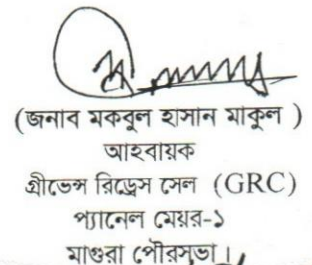 (জনাব মকবুল হাসান মাকুল )
আহবায়ক
গ্রীভেন্স রিড্রেস সেল (GRC)
প্যানেল মেয়র-১
মাগুরা পৌরসভা।